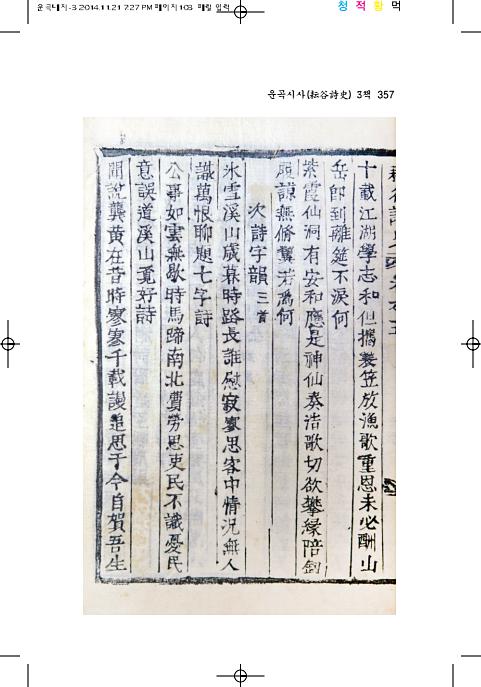 운곡내지-3 2014.11.21 7:27 PM 페이지103 매킬 일력
청 적 황 먹
운곡시사(耘谷詩史) 3책 357
十載江湖學志和但攜蓑笠放漁歌重恩未必酬山
岳卽到離筵不淚何
紫霞仙洞有安和應是神仙奏浩歌切欲攀緣陪釰
履諒無脩翼若爲何
次詩字韻 三首
氷雪溪山歲暮時路長誰慰寂寥思客中情况無人
識萬恨聊題七字詩
公事如雲無歇時馬蹄南北費勞思吏民不識憂民
意誤道溪山覓好詩
聞說龔黃在昔時寥寥千載謾追思于今自賀吾生